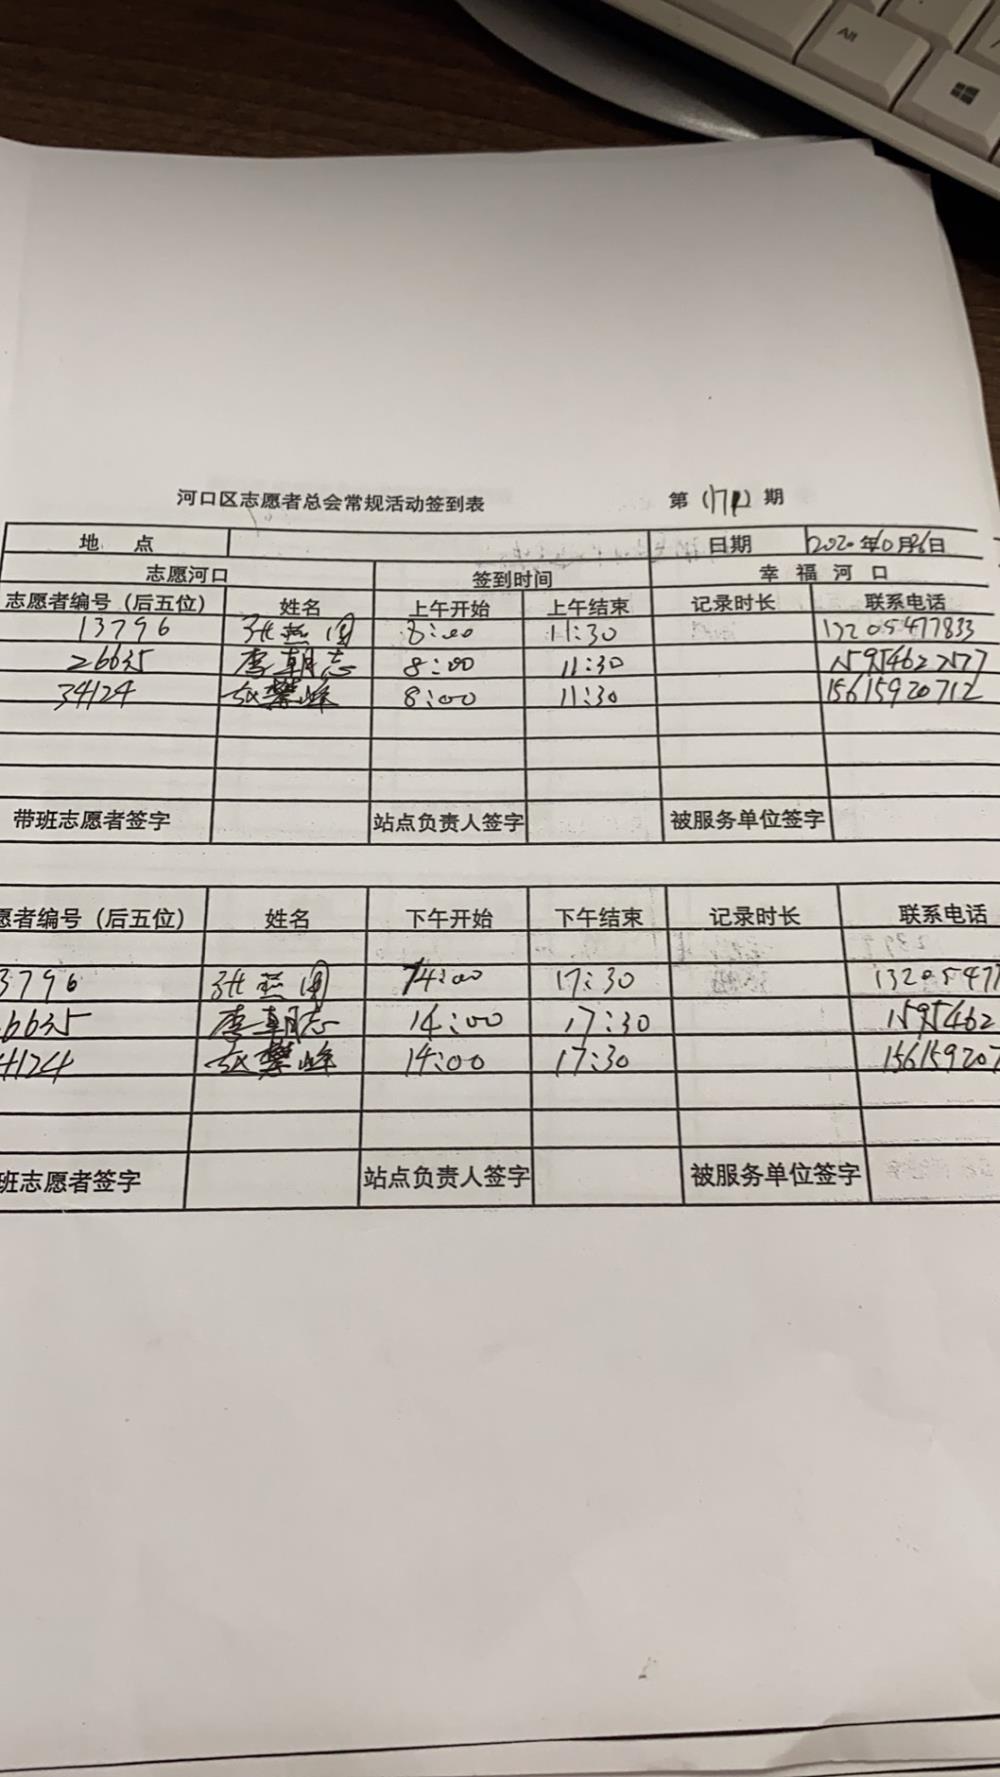 河口区志愿者总会常规活动签到表 第（171）期
地 点 日期 2020年10月26日
志愿河口 签到时间 幸 福 河 口
志愿者编号（后五位） 姓名 上午开始 上午结束 记录时长 联系电话
13796 张照国 8:00 11:30 13205477833
26635 李朝志 8:00 11:30 15954622577
34124 赵攀峰 8:00 11:30 15615920712
带班志愿者签字 站点负责人签字 被服务单位签字
愿者编号（后五位） 姓名 下午开始 下午结束 记录时长 联系电话
3796 张照国 14:00 17:30 13205477
6635 李朝志 14:00 17:30 1595462
4124 赵攀峰 14:00 17:30 156159207
班志愿者签字 站点负责人签字 被服务单位签字
Alt